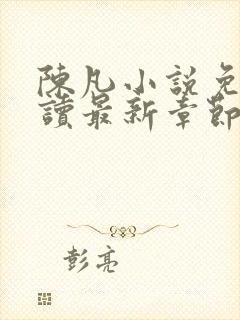 陳凡小說免
讀最新章節
彭亮